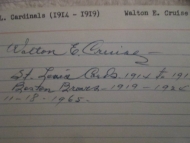 L. Cardinals (1914 - 1919) Walton E. Cruise
Walton E. Cruise
St. Louis Cards. 1914 to 191
Boston Braves - 1919 - 1924
11-18-1965-